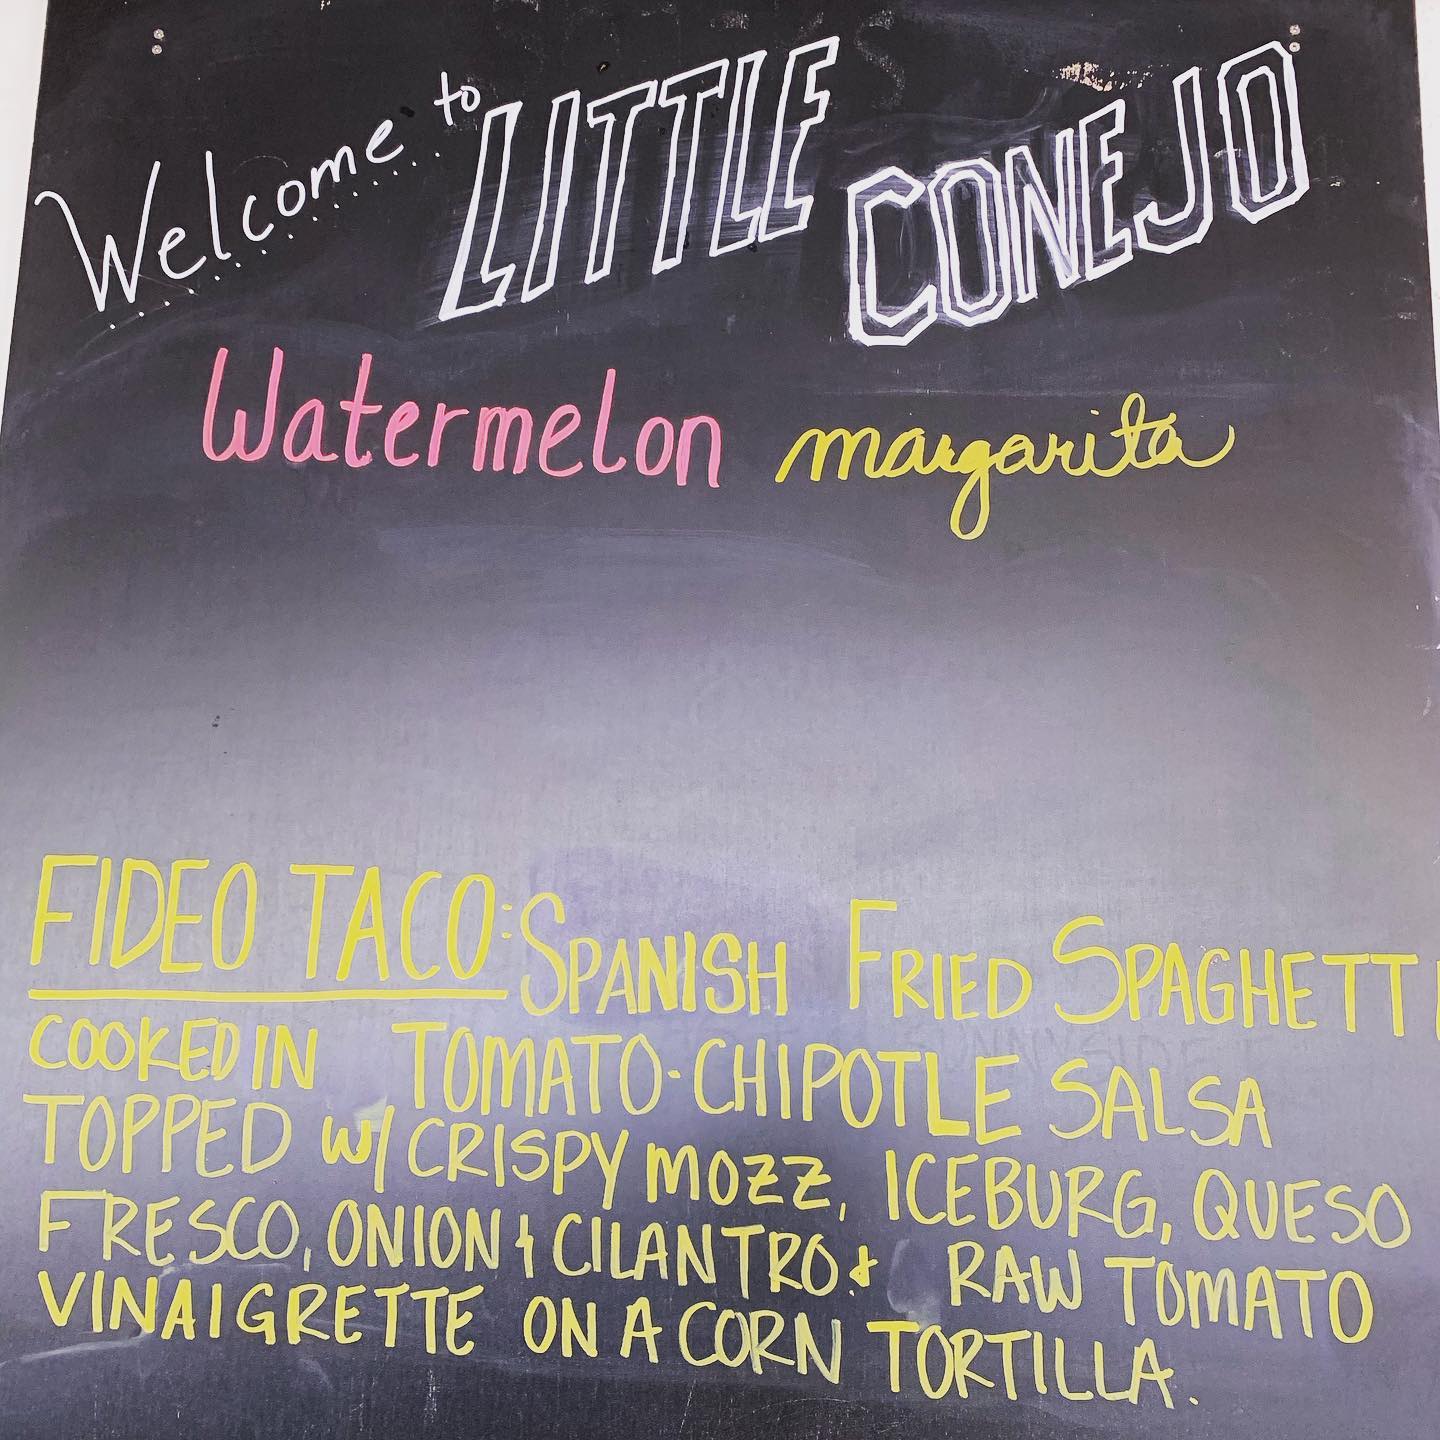 Welcome to LITTLE CONEJO
Watermelon margarita
FIDEO TACO: SPANISH FRIED SPAGHETTI
COOKED IN TOMATO-CHIPOTLE SALSA
TOPPED w/ CRISPY MOZZ, ICEBURG, QUESO
FRESCO, ONION & CILANTRO & RAW TOMATO
VINAIGRETTE ON A CORN TORTILLA.